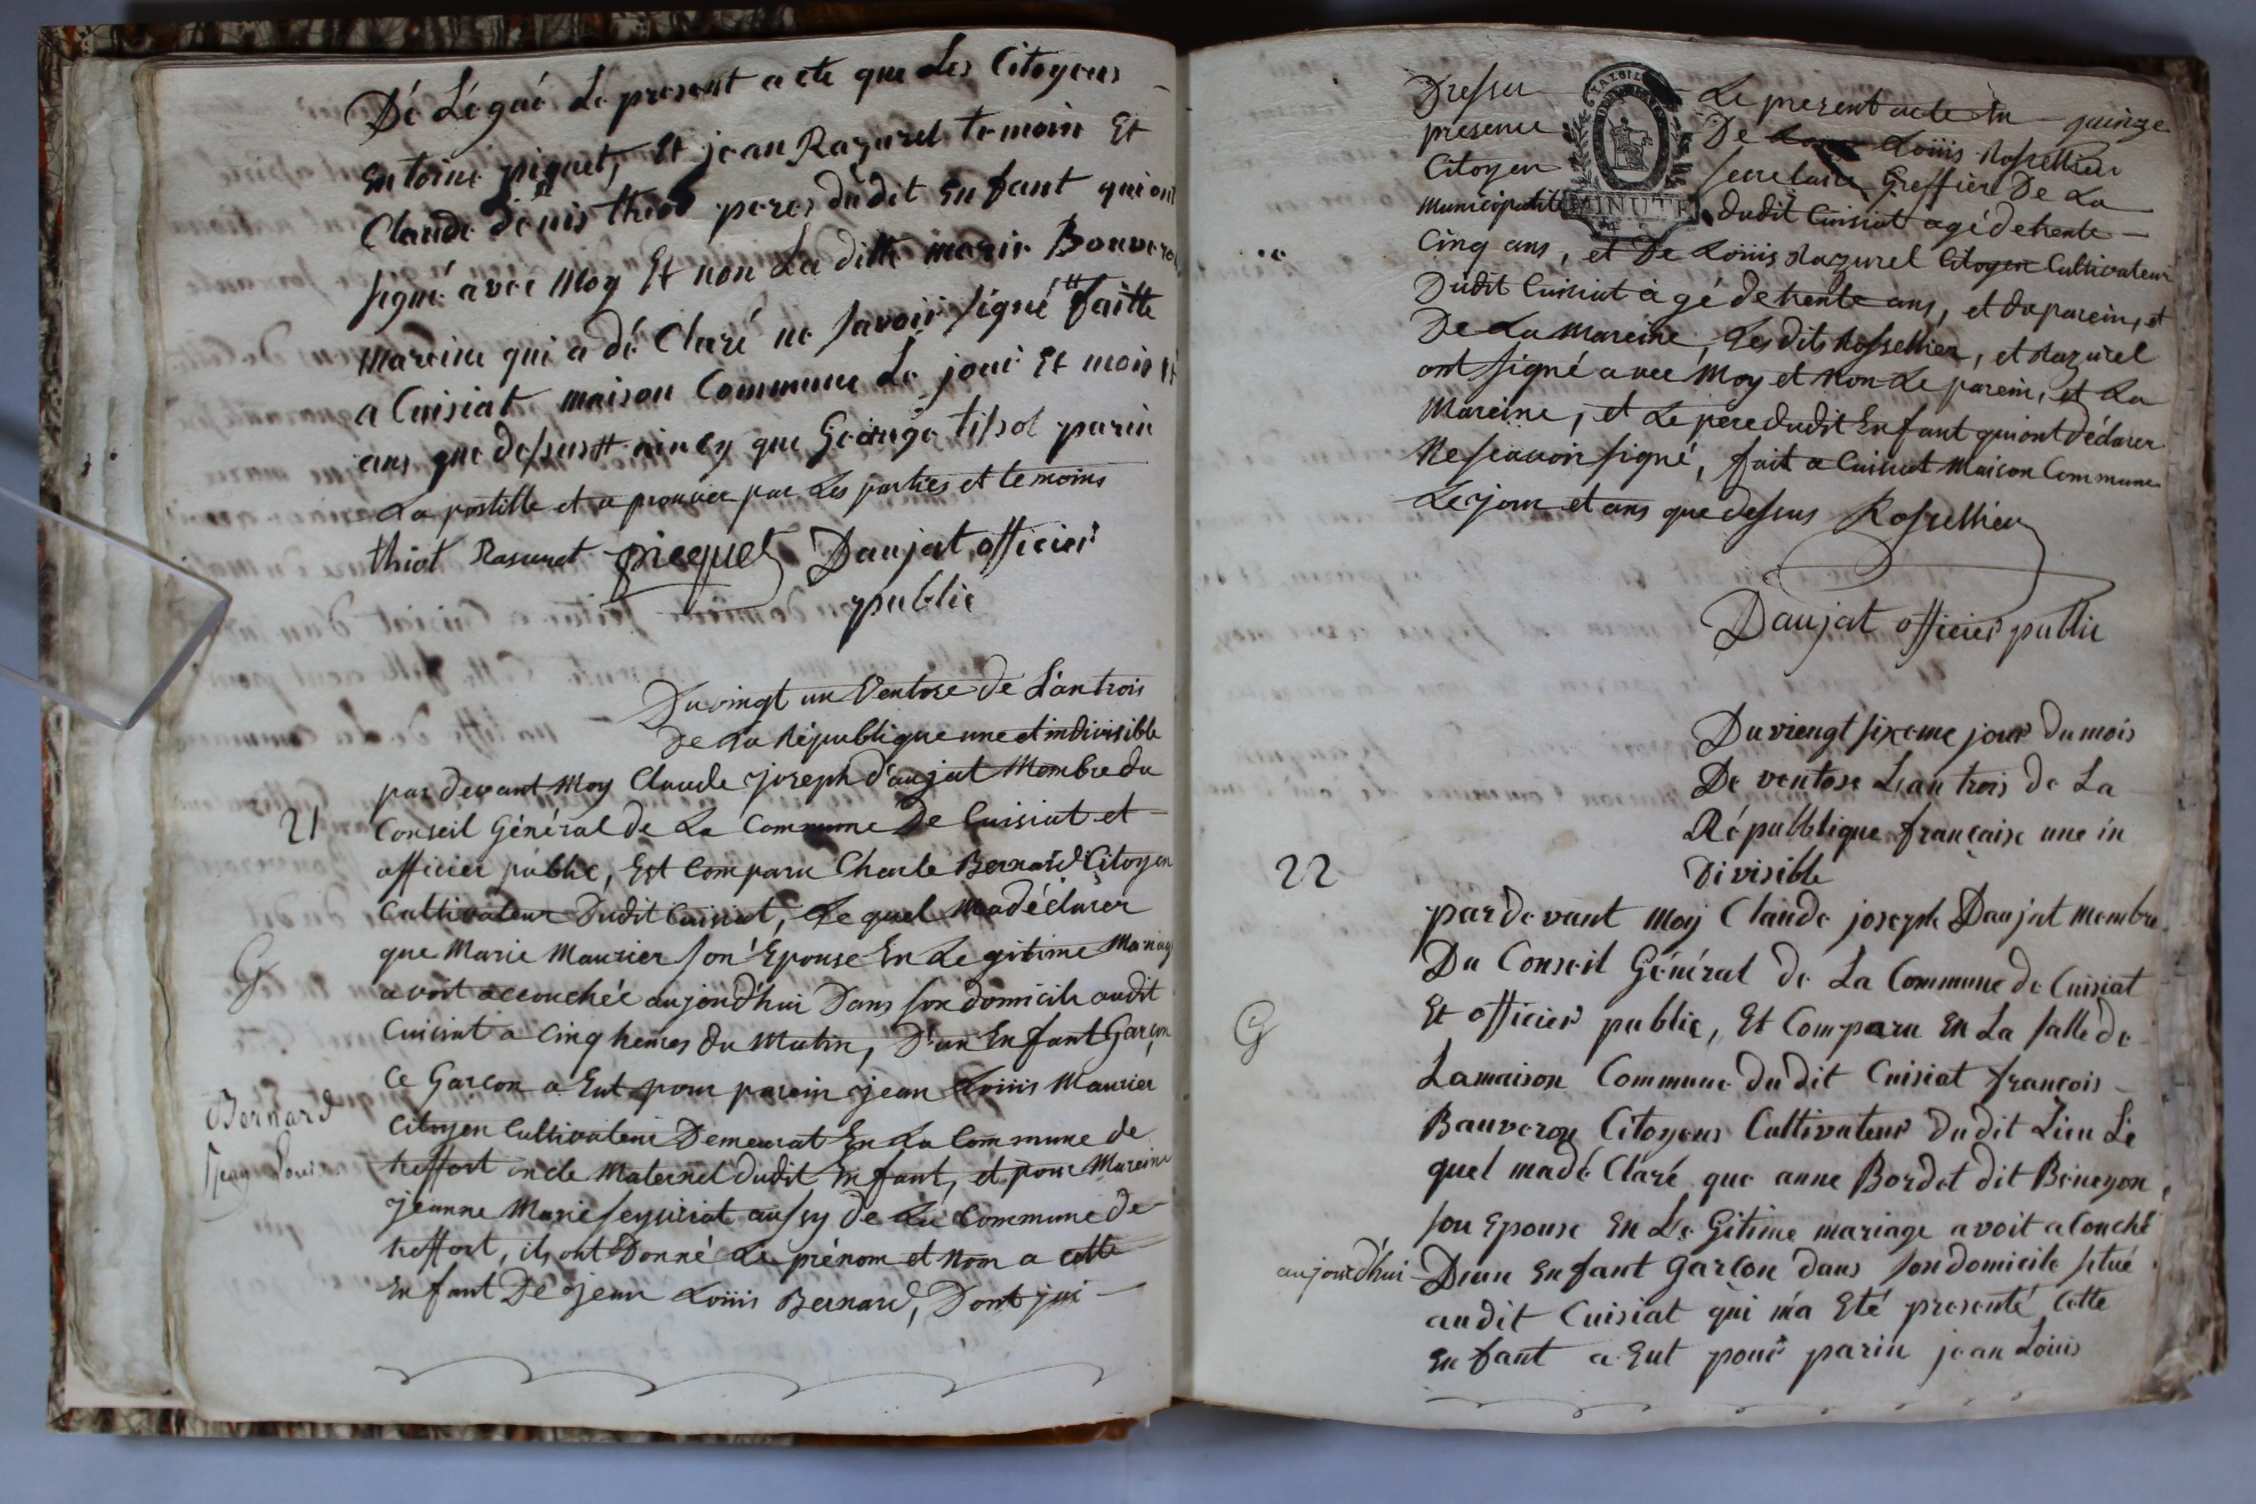 Dé Légué Le present acte que Les Citoyens
Entoine piquet, Et jean Razurel temoin Et
Claude denis thiot peres dudit Enfant qui ont
signé avec Moy Et non La ditte marie Bouveron
Mareine qui a dé Claré ne savoir signé # faitte
a Cuisiat maison Commune Le jour Et mois Et
ans que dessus # aincy que George tissot parin
La postille et aprouvée par Les parties et temoins
thiot Rasurel picquet Daujat officier
public
Du vingt un Ventose de L'an trois
De La République une et indivisible
par devant Moy Claude joseph d'aujat Membre du
21
Conseil Général de La Commune De Cuisiat et
officier public, Est Comparu Charle Bernard Citoyen
Cultivateur Dudit Cuisiat, Le quel Ma déclarer
que Marie Maurier son Epouse En Legitime Mariage
G
avoit accouchée aujourd'hui Dans son domicile audit
Cuisiat a Cinq heures du Matin, D'un Enfant Garçon
Ce Garcon a Eut pour parein jean Loüis Maurier
Bernard
Jean Louis
Citoyen Cultivateur Demeurat En La Commune de
treffort oncle Maternel dudit Enfant, et pour Mareine
jeanne Marie seysiriat aussy de La Commune de
treffort, ils ont Donné Le prénom et Nom a cette
Enfant De jean Loüis Bernard, Dont jai
Dresser Le present acte En
presence De Loüis Rossellier quinze
Citoyen secretaire Greffier De La
MINUTE
Municipalité dudit Cuisiat agé de trente
Cinq ans, et De Loüis Razurel Citoyen Cultivateur
Dudit Cuisiat agé de trente ans, et du parein, et
De La Mareine, Lesdits Rossellier, et Razurel
ont signé avec Moy et Non Le parein, et La
Mareine, et Le pere dudit Enfant qui ont déclarer
Ne scavoir signé, fait a Cuisiat Maison Commune
Le jour et ans que dessus Rossellier
Daujat officier public
Du viengt sixeme jour du mois
De ventose L'an trois de La
République française une in
Divisible
22
par devant Moy Claude joseph Daujat membre
Du Conseil Général de La Commune de Cuisiat
Et officier public, Et Comparu En La salle de
G
La maison Commune du dit Cuisiat francois
Bauveron Citoyens Cultivateur du dit Lieu Le
quel ma dé Claré que anne Bordet dit Béneyon
son Epouse En Le Gitime mariage avoit acouché
aujourd'hui
D'un Enfant Garcon dans son domicile situé
audit Cuisiat qui m'a Eté presenté, Cette
Enfant a Eut pour parin jean Loüis